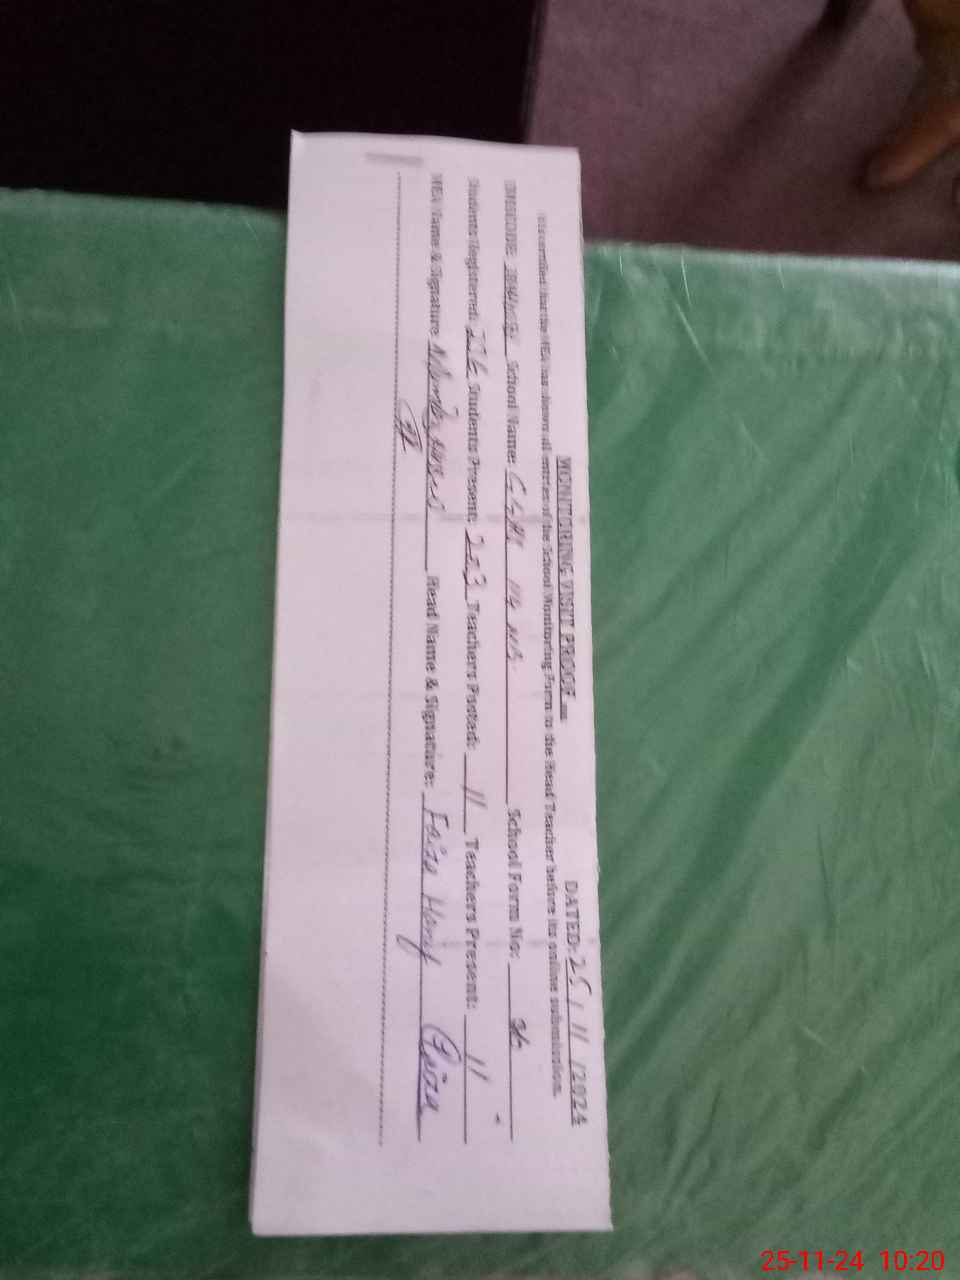 MONITORING VISIT PROOF DATED:-25/11/2024
It is certified that the MEA has shown all entries of the School Monitoring Form to the Head Teacher before its online submission.
EMISCODE: School Name: GGHS School Form No:
Students Registered: 226 Students Present: 203 Teachers Posted: 11 Teachers Present: 11
MEA Name & Signature: Head Name & Signature: Faiza Hanif Faiza
25-11-24 10:20